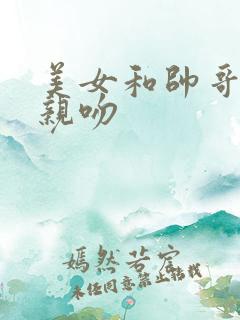 美女和帅哥
親吻
嫣然若宫
未经同意禁止转载